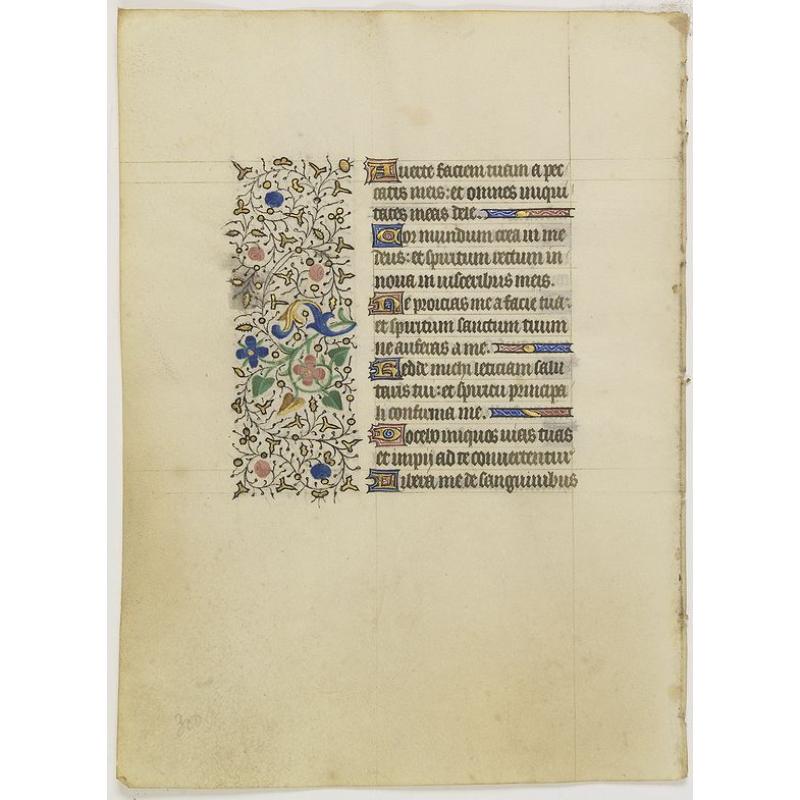 Auerte faciem tuam a pec
catis meis: et omnes iniqui
tates meas dele.
Cor mundum crea in me
deus: et spiritum rectum in
noua in uisceribus meis.
Ne proicias me a facie tua:
et spiritum sanctum tuum
ne auferas a me.
Redde michi leticiam salu
taris tui: et spiritu principa
li confirma me.
Docebo iniquos uias tuas
et impij ad te conuertentur
Libera me de sanguinibus